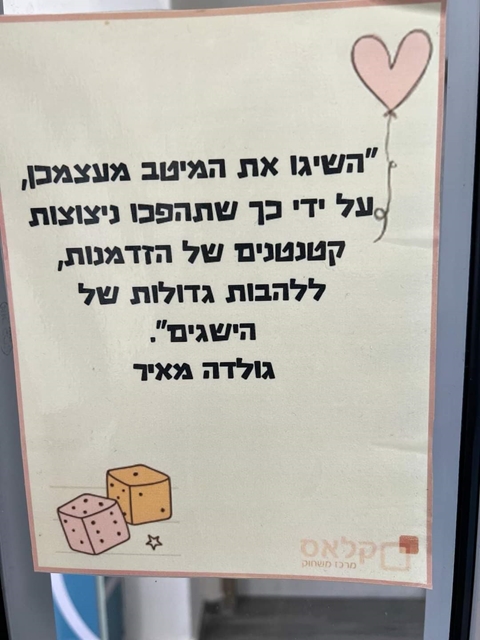 "השיגו את המיטב מעצמכן,
על ידי כך שתהפכו ניצוצות
קטנטנים של הזדמנות,
ללהבות גדולות של
הישגים".
גולדה מאיר
קלאס
מרכז משחוק